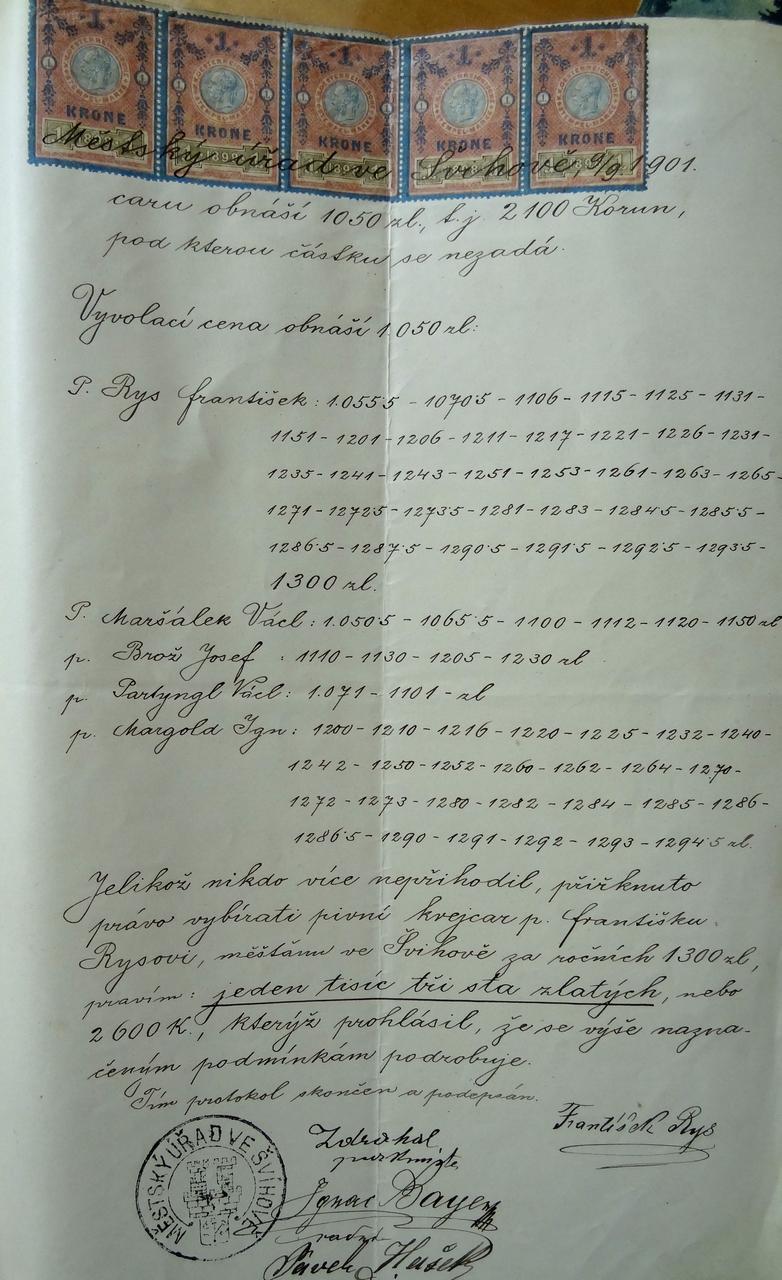 1 1 1 1 1
KRONE KRONE KRONE KRONE KRONE
Městský úřad ve Švihově, 9/9 1901.
caru obnáší 1050 zl., t.j. 2100 Korun,
pod kterou částku se nezadá.
Vyvolací cena obnáší 1.050 zl:
P. Rys František: 1.055·5 - 1070·5 - 1106 - 1115 - 1125 - 1131 -
1151 - 1201 - 1206 - 1211 - 1217 - 1221 - 1226 - 1231 -
1235 - 1241 - 1243 - 1251 - 1253 - 1261 - 1263 - 1265 -
1271 - 1272·5 - 1273·5 - 1281 - 1283 - 1284·5 - 1285·5 -
1286·5 - 1287·5 - 1290·5 - 1291·5 - 1292·5 - 1293·5 -
1300 zl.
P. Maršálek Václ: 1.050·5 - 1065·5 - 1100 - 1112 - 1120 - 1150 zl
p. Brož Josef : 1110 - 1130 - 1205 - 1230 zl
p. Partyngl Václ: 1.071 - 1101 - zl
p. Margold Ign: 1200 - 1210 - 1216 - 1220 - 1225 - 1232 - 1240 -
1242 - 1250 - 1252 - 1260 - 1262 - 1264 - 1270 -
1272 - 1273 - 1280 - 1282 - 1284 - 1285 - 1286 -
1286·5 - 1290 - 1291 - 1292 - 1293 - 1294·5 zl.
Jelikož nikdo více nepřihodil, přiřknuto
právo vybírati pivní krejcar p. Františku
Rysovi, měšťanu ve Švihově za ročních 1300 zl,
pravím: jeden tisíc tři sta zlatých, nebo
2600 K., kterýž prohlásil, že se výše nazna-
čeným podmínkám podrobuje.
Tím protokol skončen a podepsán.
František Rys
Zdráhal
purkmistr
Ignac Bayer
radní
Hašek
MĚSTSKÝ ÚŘAD VE ŠVIHOVĚ